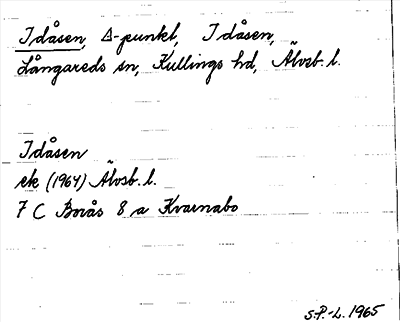 Idåsen, Δ-punkt, Idåsen,
Långareds sn, Kullings hd, Älvsb. l.
Idåsen
ek (1964) Älvsb. l.
7 C Borås 8 a Kvarnabo
S.P.-L. 1965